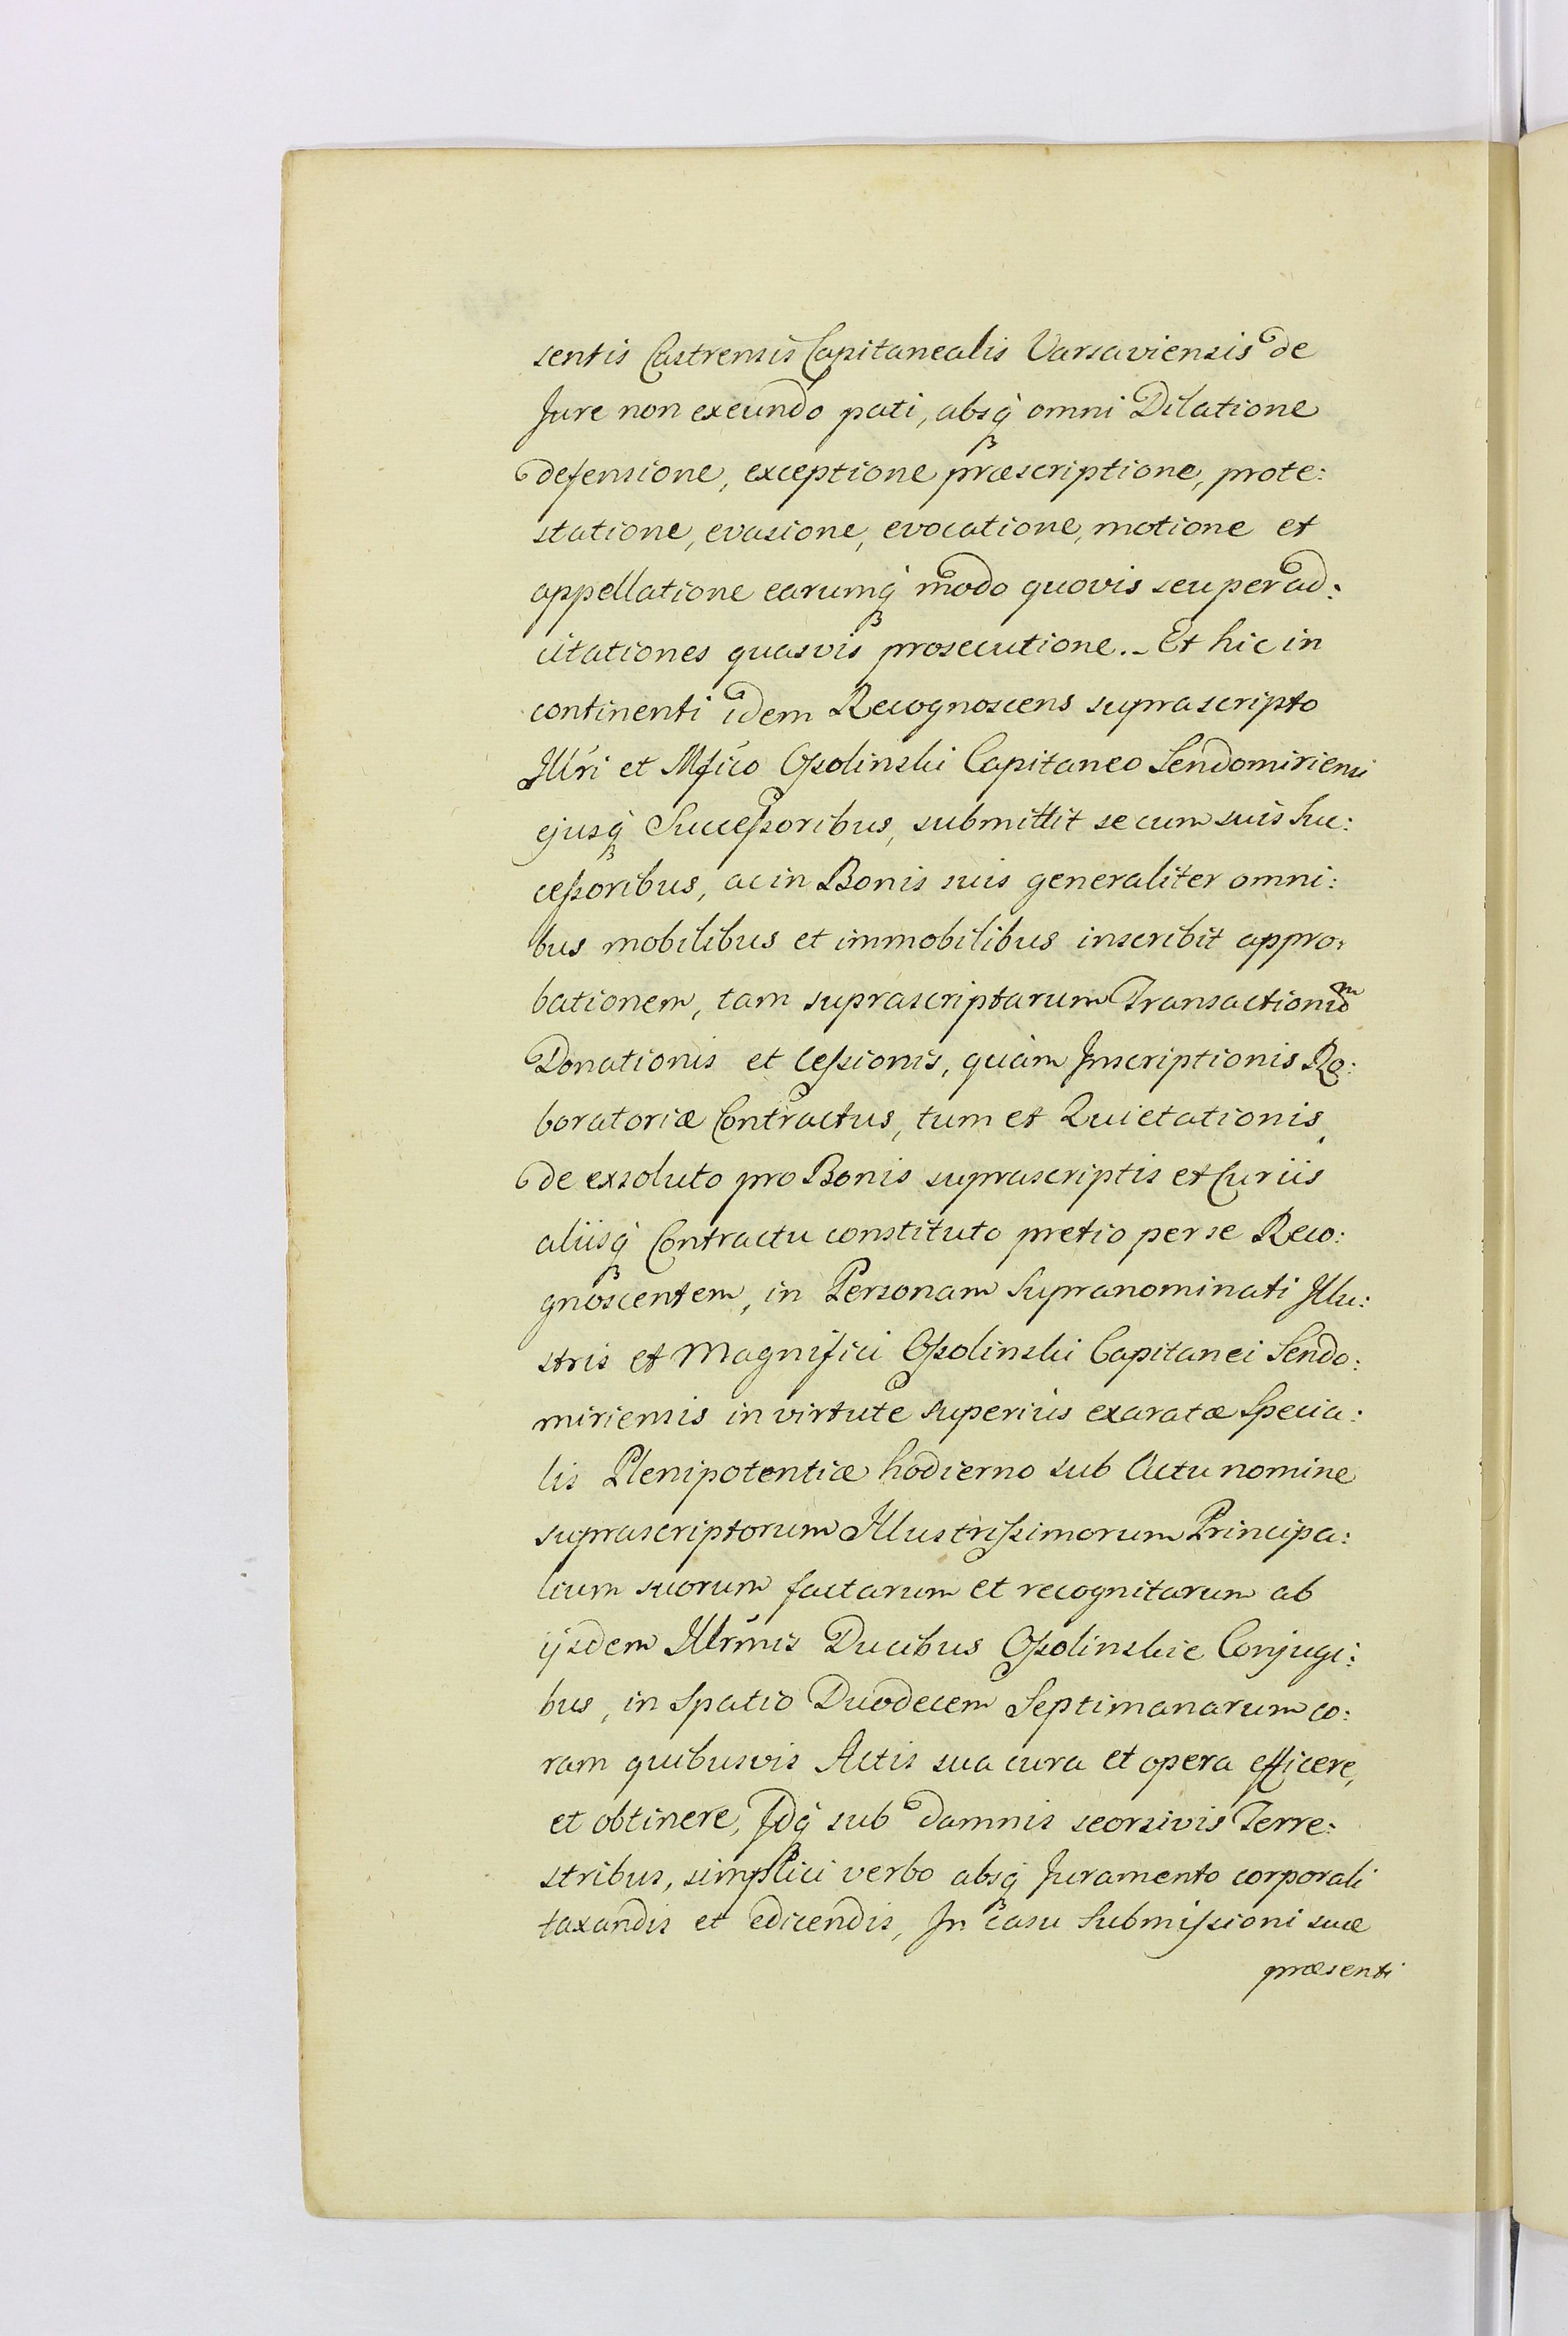 sentis Castrensis Capitanealis Varsaviensis de
Jure non exeundo pati, absq́ omni Dilatione
defensione, exceptione præscriptione, prote:
statione, evasione, evocatione, motione et
appellatione earumq́ modo quovis seu per ad:
citationes quasvis prosecutione._ Et hic in
continenti idem Recognoscens suprascripto
Illri et Mfico Ossolinski Capitaneo Sendomiriensi
ejusq́ Successoribus, submittit se cum suis Suc:
cessoribus, ac in Bonis suis generaliter omni:
bus mobilibus et immobilibus inscribit appro:
bationem, tam suprascriptarum Transactionum
Donationis et Cessionis, quàm Inscriptionis Ro:
boratoriæ Contractus, tum et Quietationis,
de exsoluto pro Bonis suprascriptis et Curiis
aliisq́ Contractu constituto pretio per se Reco:
gnoscentem, in Personam Supranominati Illu:
stris et Magnifici Ossolinski Capitanei Sendo:
miriensis in virtute superiùs exaratæ Specia:
lis Plenipotentiæ hodierno sub Actu nomine
suprascriptorum Illustrissimorum Principa:
lium suorum factarum et recognitarum ab
ijsdem Illrmis Ducibus Ossolinskie Conjugi:
bus, in Spatio Duodecem Septimanarum co:
ram quibusvis Actis sua cura et opera efficere,
et obtinere, Idq́ sub damnis seorsivis Terre:
stribus, simplici verbo absq́ Juramento corporali
taxandis et edicendis, In casu Submissioni suæ
præsenti